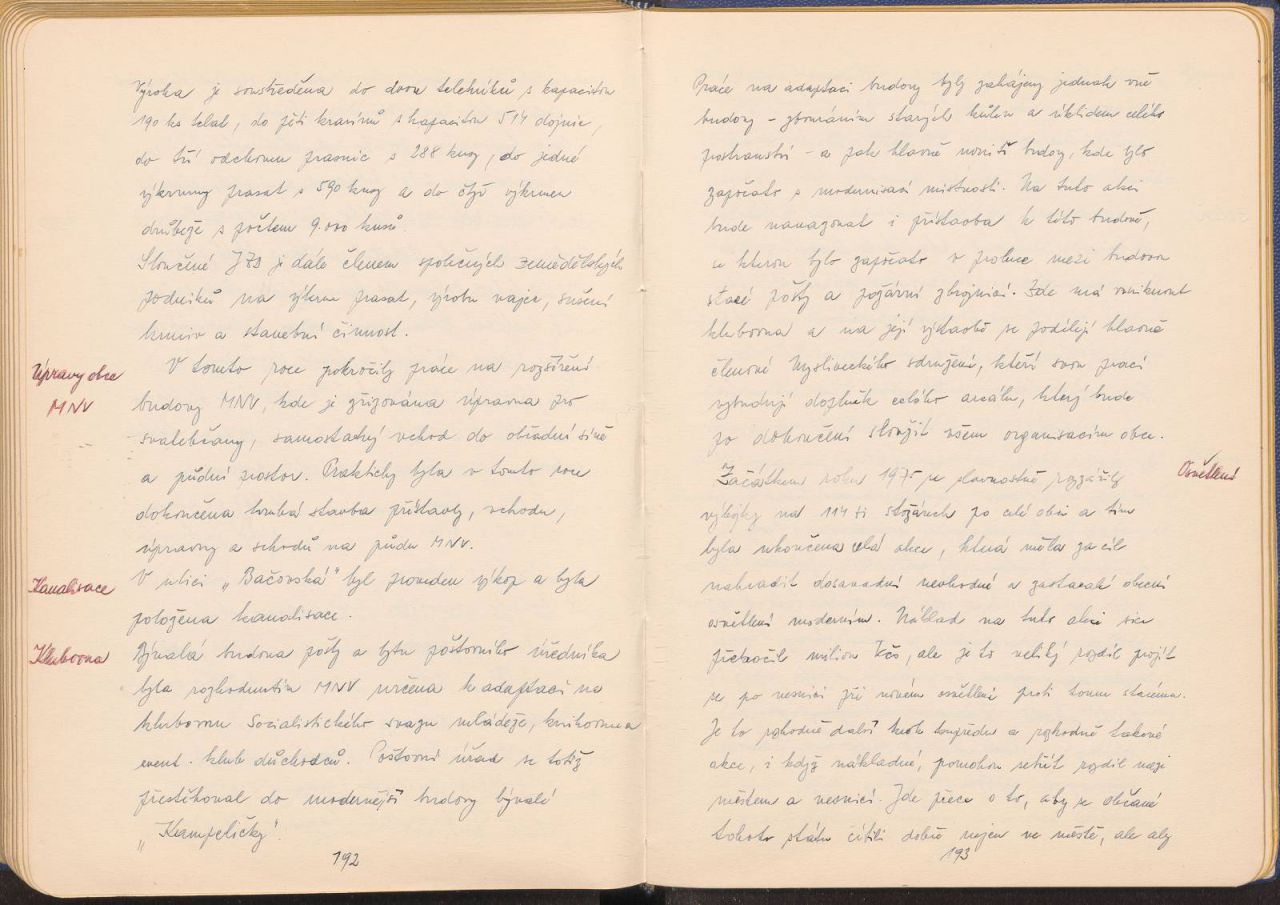 Výroba je soustředěna do dvou teletníků s kapacitou
190 ks telat, do pěti kravínů s kapacitou 514 dojnic,
do tří odchoven prasnic s 288 kusy, do jedné
výkrmny prasat s 590 kusy a do čtyř výkrmen
drůbeže s počtem 9.000 kusů.
Sloučené JZD je dále členem společných zemědělských
podniků na výkrm prasat, výrobu vajec, sušení
krmiv a stavební činnost.
Úpravy obce
MNV
V tomto roce pokročily práce na rozšíření
budovy MNV, kde je zřizována úpravna pro
svatebčany, samostatný vchod do obřadní síně
a půdní prostor. Prakticky byla v tomto roce
dokončena hrubá stavba přístavby, vchodu,
úpravny a schodů na půdu MNV.
Kanalisace
V ulici „Bačovská" byl proveden výkop a byla
položena kanalisace.
Klubovna
Bývalá budova pošty a bytu poštovního úředníka
byla rozhodnutím MNV určena k adaptaci na
klubovnu Socialistického svazu mládeže, knihovnu a
event. klub důchodců. Poštovní úřad se totiž
přestěhoval do modernější budovy bývalé
„Kampeličky".
192
Práce na adaptaci budovy byly zahájeny jednak vně
budovy - zbouráním starých kůlen a úklidem celého
prostranství - a pak hlavně uvnitř budovy, kde bylo
započato s modernisací místností. Na tuto akci
bude navazovat i přístavba k této budově,
se kterou bylo započato v proluce mezi budovou
staré pošty a požární zbrojnicí. Zde má vzniknout
klubovna a na její výstavbě se podílejí hlavně
členové Mysliveckého sdružení, kteří svou prací
vybudují doplněk celého areálu, který bude
po dokončení sloužit všem organisacím obce.
Osvětlení
Začátkem roku 1975 se slavnostně rozzářily
výbojky na 114 ti stožárech po celé obci a tím
byla ukončena celá akce, která měla za cíl
nahradit dosavadní nevhodné a zastaralé obecní
osvětlení moderním. Náklad na tuto akci sice
překročil milion Kčs, ale je to veliký rozdíl projít
se po vesnici při novém osvětlení proti tomu starému.
Je to rozhodně další krok kupředu a rozhodně takové
akce, i když nákladné, pomohou setřít rozdíl mezi
městem a vesnicí. Jde přece o to, aby se občané
tohoto státu cítili dobře nejen ve městě, ale aby
193